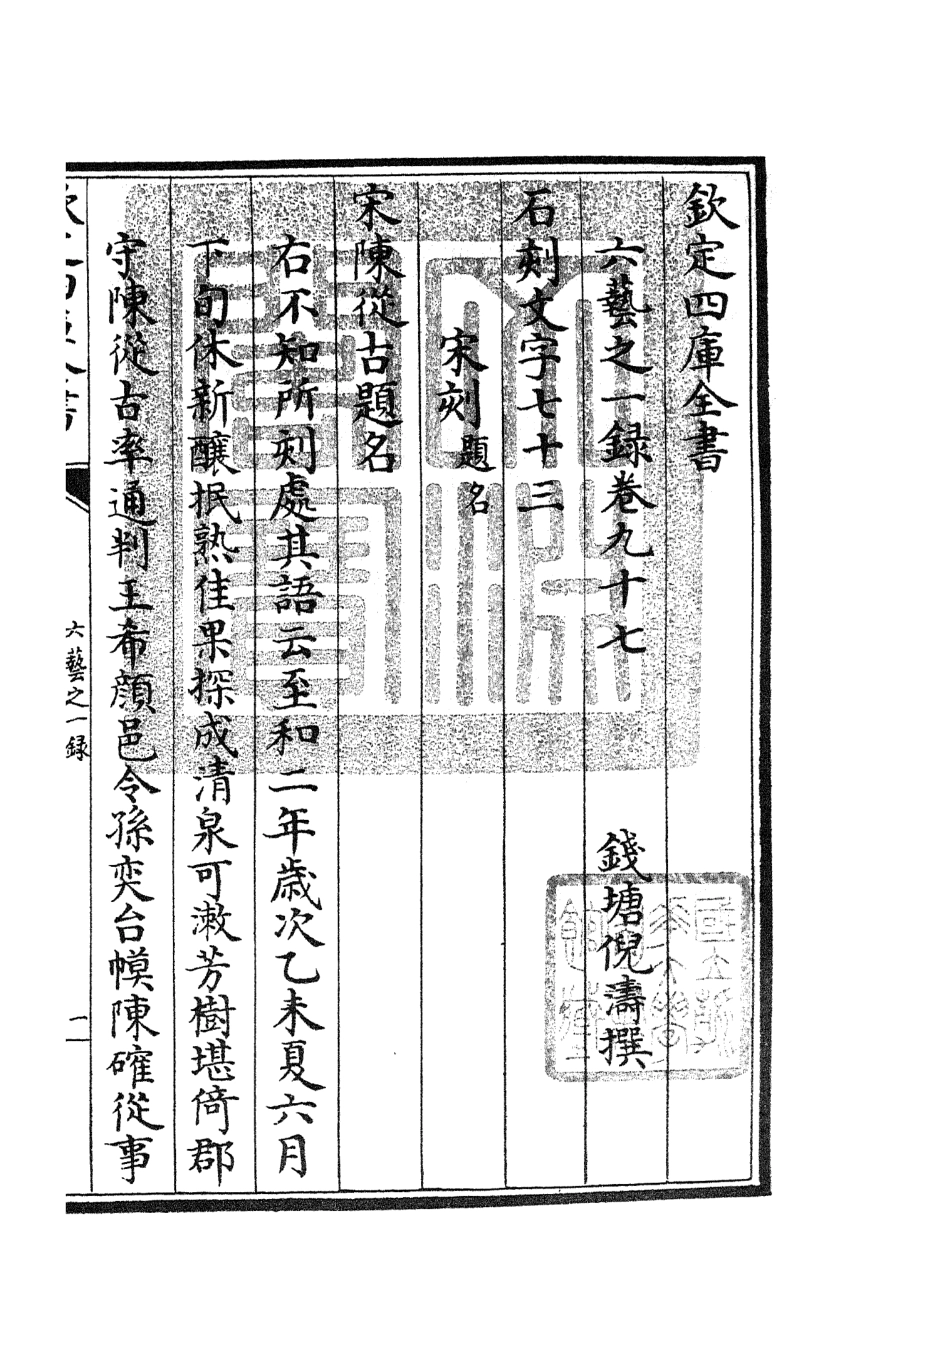 欽定四庫全書
六藝之一録卷九十七
錢塘倪濤撰
石刻文字七十三
宋刻題名
宋陳從古題名
右不知所刻處其語云至和二年歳次乙未夏六月
下旬休新釀抿熟佳果探成清泉可漱芳樹堪倚郡
守陳從古率通判王希顔邑令孫奕台幙陳確從事
六藝之一録
一